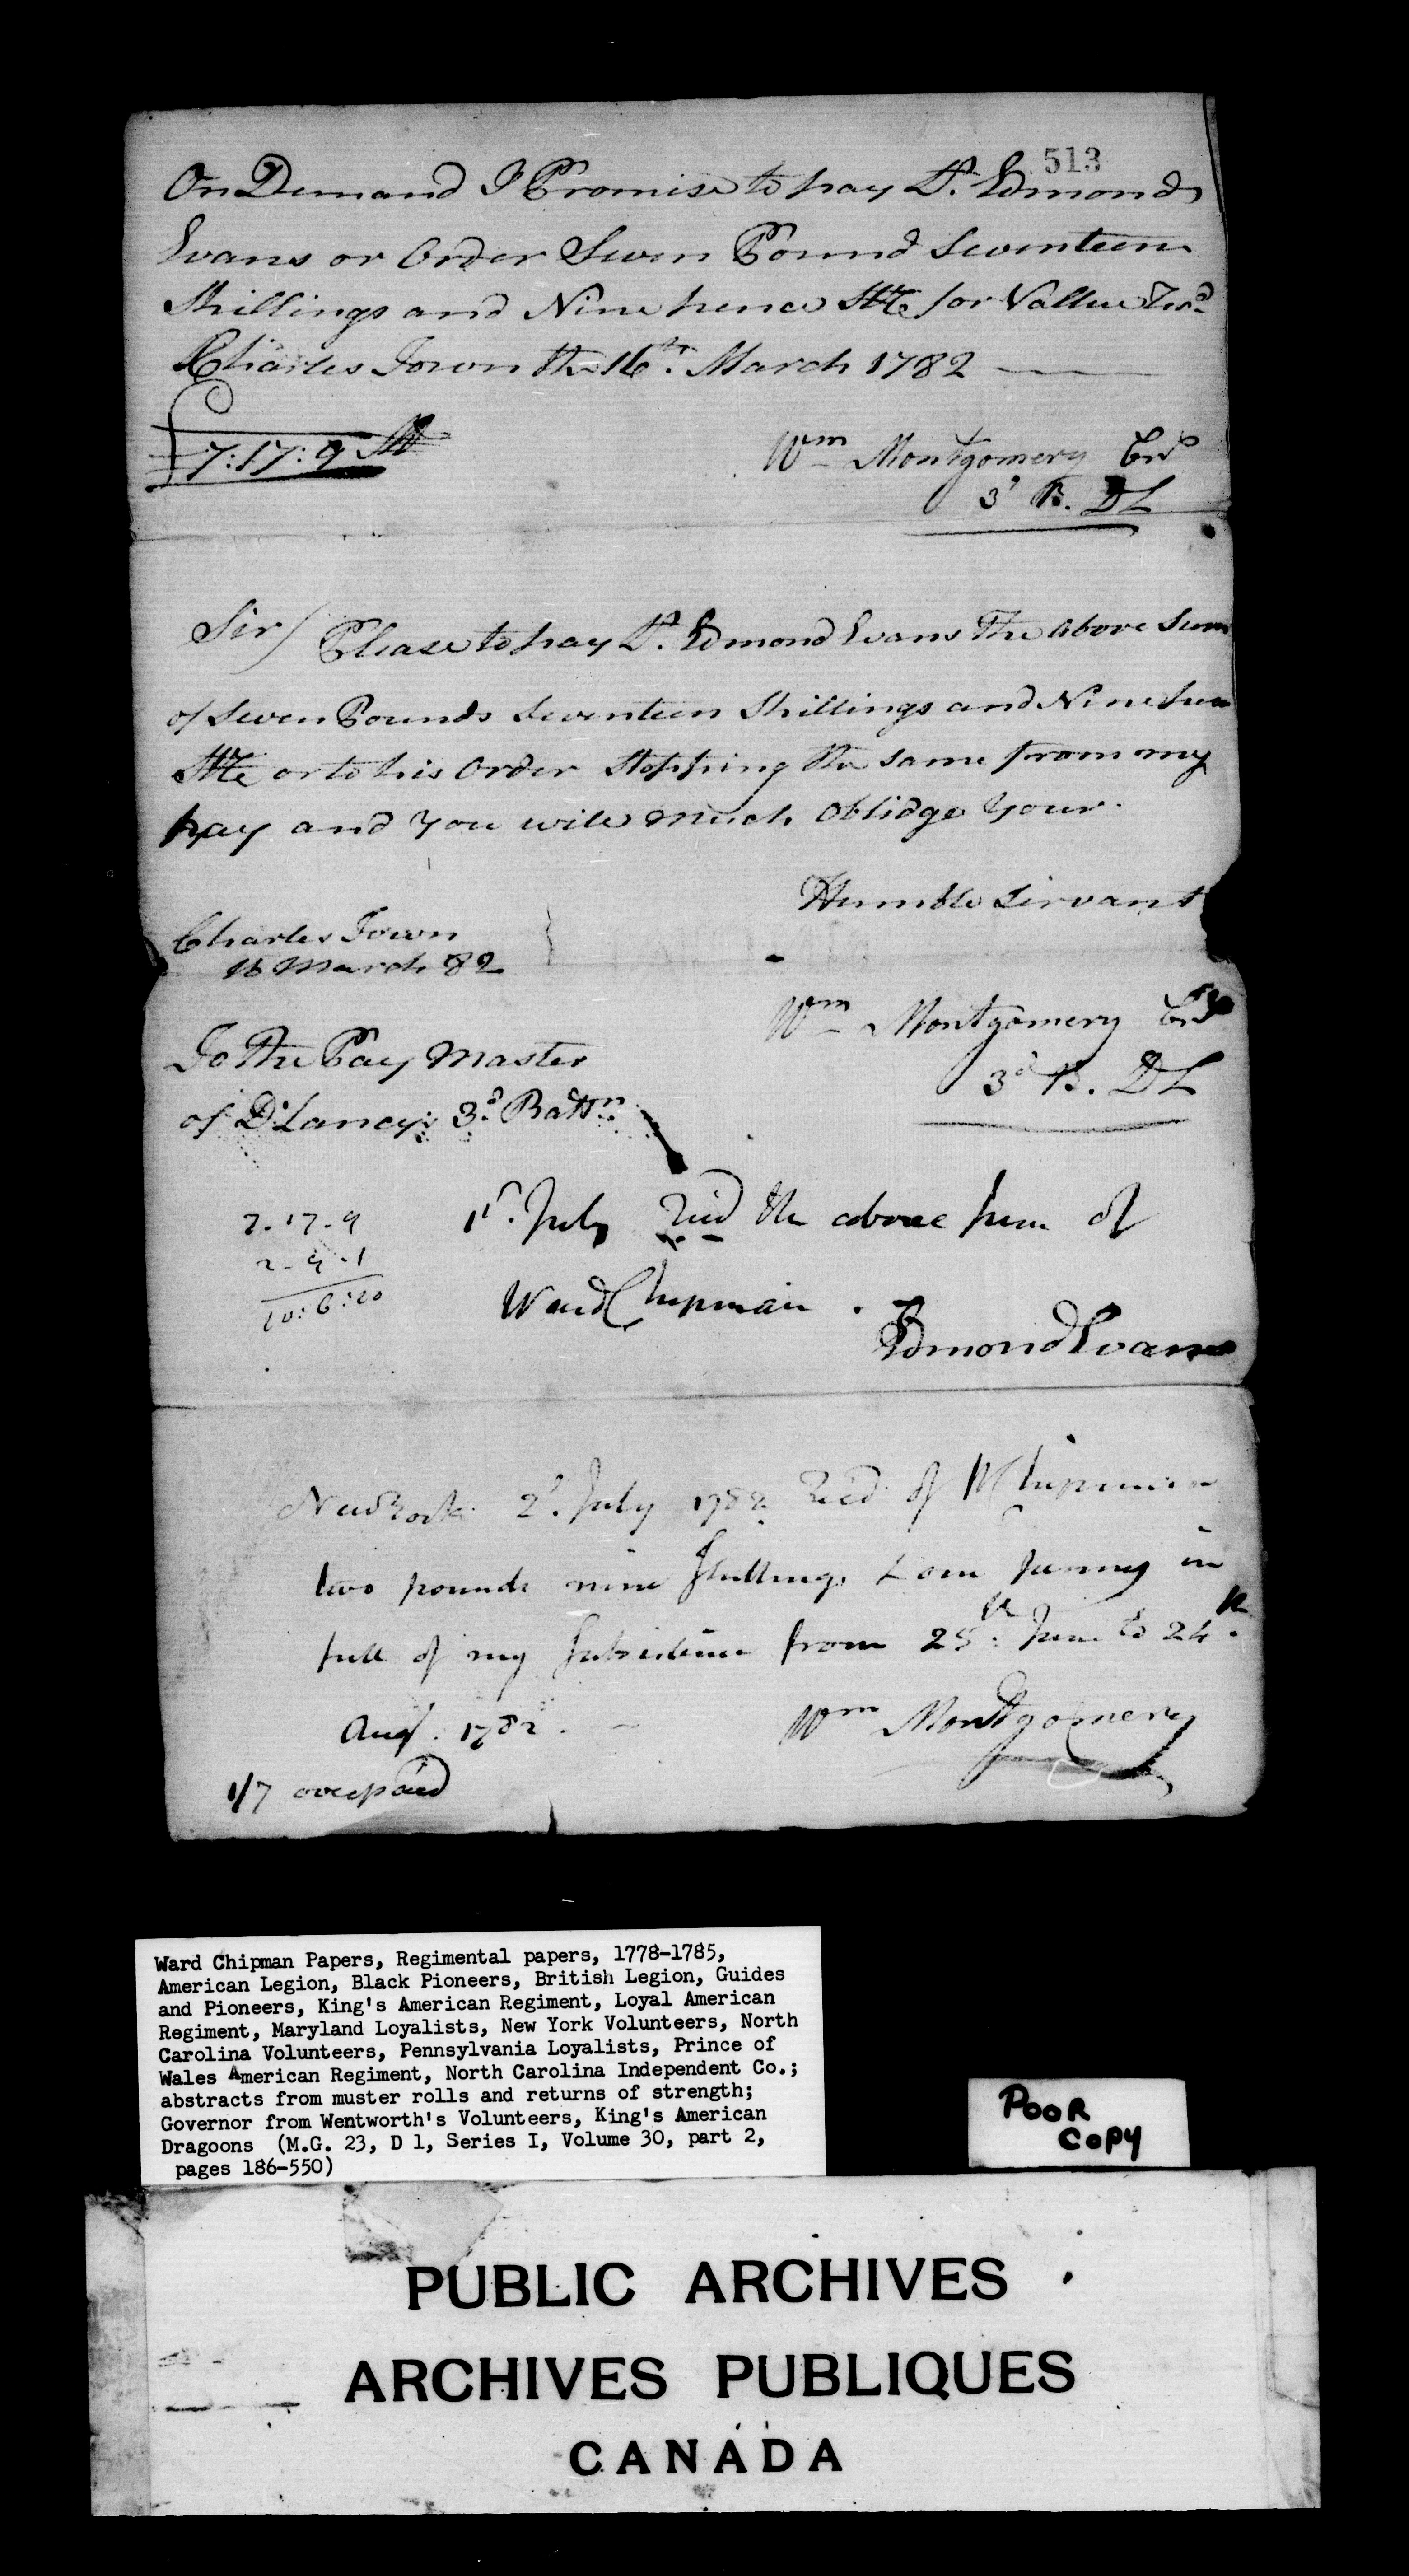 513
On Demand I Promise to pay Lt. Edmond
Evans or Order Seven Pound Seventeen
Shillings and Nine pence Ste for Vallue Recd
Charles Town the 16th. March 1782
£7:17:9 St
Wm Montgomery Ens
3d B. DL
Sir/ Please to pay Lt. Edmond Evans The above Sum
of Seven Pounds Seventeen Shillings and Nine
Ste or to his Order Stopping the same from my
pay and you will much Oblidge Your
Humble Servant
Charles Town
16 March 82
Wm Montgomery Ens
3d B. DL
To The Pay Master
of D'Lancys 3d. Battn.
7-17-9
2-9-1
10:6:10
1st. July Recd the above sum of
Ward Chipman.
Edmond Evans
New York 2d. July 1782 Recd of W Chipman
two pounds nine Shillings & one penny in
full of my Subsistence from 25th. June to 24th.
Augt. 1782.
Wm Montgomery
1/7 overpaid
Ward Chipman Papers, Regimental papers, 1778-1785,
American Legion, Black Pioneers, British Legion, Guides
and Pioneers, King's American Regiment, Loyal American
Regiment, Maryland Loyalists, New York Volunteers, North
Carolina Volunteers, Pennsylvania Loyalists, Prince of
Wales American Regiment, North Carolina Independent Co.;
abstracts from muster rolls and returns of strength;
Governor from Wentworth's Volunteers, King's American
Dragoons (M.G. 23, D 1, Series I, Volume 30, part 2,
pages 186-550)
POOR
COPY
PUBLIC ARCHIVES
ARCHIVES PUBLIQUES
CANADA